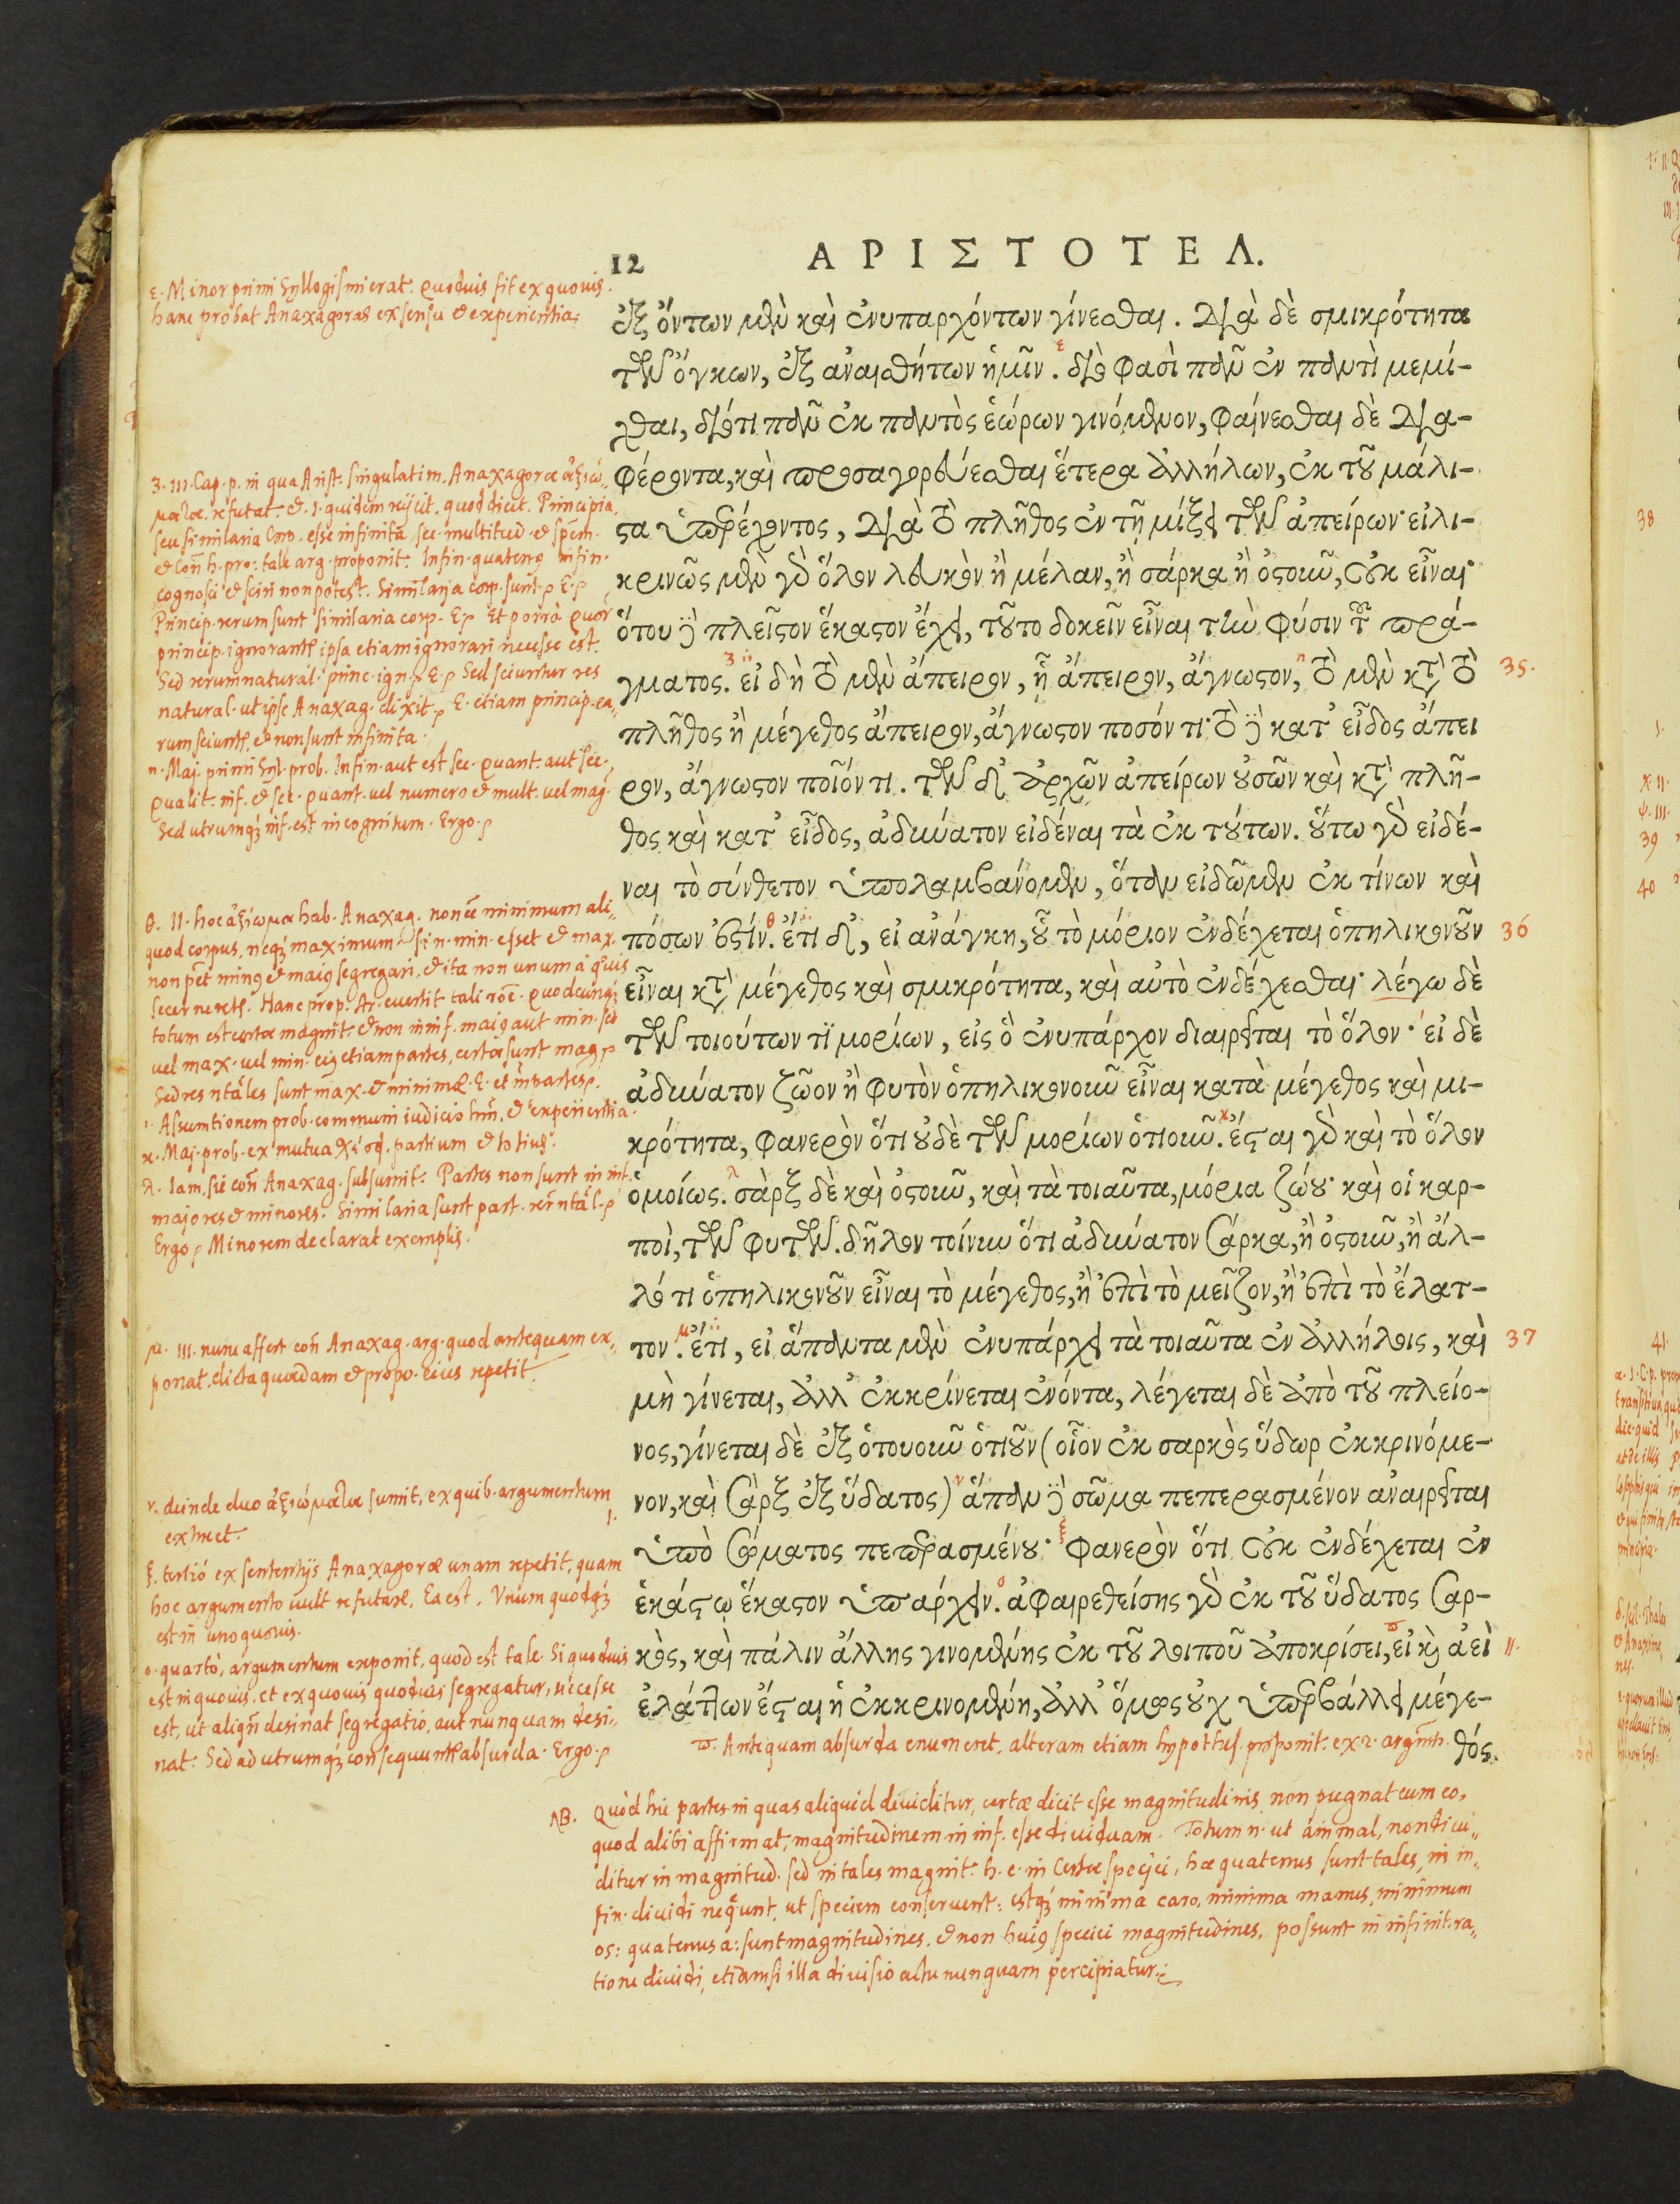 12
ΑΡΙΣΤΟΤΕΛ.
ἐξ ὄντων μὲν καὶ ἐνυπαρχόντων γίνεσθαι. Διὰ δὲ σμικρότητα
τῶν ὄγκων, ἐξ ἀναισθήτων ἡμῖν. διό φασι πᾶν ἐν παντὶ μεμί-
χθαι, διότι πᾶν ἐκ παντὸς ἑώρων γινόμενον, φαίνεσθαι δὲ Δια-
φέροντα, καὶ προσαγορεύεσθαι ἕτερα ἀλλήλων, ἐκ τοῦ μάλι-
στα ὑπερέχοντος, Διὰ τὸ πλῆθος ἐν τῇ μίξει τῶν ἀπείρων· εἰλι-
κρινῶς μὲν γὰρ ὅλον λευκὸν ἢ μέλαν, ἢ σάρκα ἢ ὀστοῦν, οὐκ εἶναι·
ὅτου δὲ πλεῖστον ἕκαστον ἔχει, τοῦτο δοκεῖν εἶναι τὴν φύσιν τοῦ πρά-
γματος. εἰ δὴ τὸ μὲν ἄπειρον, ᾗ ἄπειρον, ἄγνωστον, τὸ μὲν κατὰ τὸ
πλῆθος ἢ μέγεθος ἄπειρον, ἄγνωστον ποσόν τι· τὸ δὲ κατ' εἶδος ἄπει
ρον, ἄγνωστον ποῖόν τι. τῶν δ' ἀρχῶν ἀπείρων οὐσῶν καὶ κατὰ πλῆ-
θος καὶ κατ' εἶδος, ἀδύνατον εἰδέναι τὰ ἐκ τούτων. οὕτω γὰρ εἰδέ-
ναι τὸ σύνθετον ὑπολαμβάνομεν, ὅταν εἰδῶμεν ἐκ τίνων καὶ
πόσων ἐστίν. ἔτι δ', εἰ ἀνάγκη, οὗ τὸ μόριον ἐνδέχεται ὁπηλικονοῦν
εἶναι κατὰ μέγεθος καὶ σμικρότητα, καὶ αὐτὸ ἐνδέχεσθαι· λέγω δὲ
τῶν τοιούτων τι μορίων, εἰς ὃ ἐνυπάρχον διαιρεῖται τὸ ὅλον· εἰ δὲ
ἀδύνατον ζῶον ἢ φυτὸν ὁπηλικονοῦν εἶναι κατὰ μέγεθος καὶ μι-
κρότητα, φανερὸν ὅτι οὐδὲ τῶν μορίων ὁτιοῦν. ἔσται γὰρ καὶ τὸ ὅλον
ὁμοίως. σὰρξ δὲ καὶ ὀστοῦν, καὶ τὰ τοιαῦτα, μόρια ζώου· καὶ οἱ καρ-
ποὶ, τῶν φυτῶν. δῆλον τοίνυν ὅτι ἀδύνατον σάρκα, ἢ ὀστοῦν, ἢ ἄλ-
λό τι ὁπηλικονοῦν εἶναι τὸ μέγεθος, ἢ ἐπὶ τὸ μεῖζον, ἢ ἐπὶ τὸ ἔλατ-
τον. ἔτι, εἰ ἅπαντα μὲν ἐνυπάρχει τὰ τοιαῦτα ἐν ἀλλήλοις, καὶ
μὴ γίνεται, ἀλλ' ἐκκρίνεται ἐνόντα, λέγεται δὲ ἀπὸ τοῦ πλείο-
νος, γίνεται δὲ ἐξ ὁτουοῦν ὁτιοῦν (οἷον ἐκ σαρκὸς ὕδωρ ἐκκρινόμε-
νον, καὶ σὰρξ ἐξ ὕδατος) ἅπαν δὲ σῶμα πεπερασμένον ἀναιρεῖται
ὑπὸ σώματος πεπερασμένου· φανερὸν ὅτι οὐκ ἐνδέχεται ἐν
ἑκάστῳ ἕκαστον ὑπάρχειν. ἀφαιρεθείσης γὰρ ἐκ τοῦ ὕδατος σαρ-
κὸς, καὶ πάλιν ἄλλης γινομένης ἐκ τοῦ λοιποῦ ἀποκρίσει, εἰ καὶ ἀεὶ
ἐλάττων ἔσται ἡ ἐκκρινομένη, ἀλλ' ὅμως οὐχ ὑπερβάλλει μέγε-
θός.
35.
36
37
11.
ε. Minor primi Syllogismi erat. Quoduis fit ex quouis.
hanc probat Anaxagoras ex sensu et experientia.
ζ. III. Cap. p. in qua Arist. singulatim Anaxagoræ ἀξιώ-
ματα refutat. et 1. quidem reijcit, quod dicit. Principia
seu similaria Corp. esse infinita, sec. multitud. et spēm.
et Coñ h. pro: tale arg. proponit. Infin. quatenq infin.
cognosci et sciri non potest. Similaria corp. sunt. E.
Princip. rerum sunt similaria corp. E. Et porrò Quor
princip. ignorantr ipsa etiam ignorari necesse est.
Sed rerum natural. princ. ign. E. Sed sciuntur res
natural. ut ipse Anaxag. dixit, E. etiam princip. ea-
rum sciuntr, et non sunt infinita.
η. Maj. primi Syl. prob. Infin. aut est sec. quant. aut sec.
Qualit. inf. et sec. quant. vel numero et mult. vel mag.
Sed utrumq; inf. est incognitum. Ergo.
θ. 11. hoc ἀξίωμα hab. Anaxag. non eē minimum ali-
quod corpus, neq; maximum. si n. min. esset et max.
non pēt minq et maiq segregari, et ita non unum à quis
secerneretr. Hanc prop. Ar. euertit tali rōē. Quodcunq;
totum est certæ magnit. et non in inf. maiq aut min. sed
vel max. vel min. eiq etiam partes, certæ sunt mag.
Sed res nt̃ales sunt max. et minimæ. E. et im̄ partes.
ι. Assumtionem prob. communi iudicio hm̄. et experientia.
κ. Maj. prob. ex mutua partium et totius.
λ. Iam sic coñ Anaxag. subsumit. Partes non sunt in inf.
majores et minores. Similaria sunt part. rer̃ nt̃al.
Ergo. Minorem declarat exemplis.
μ. III. nunc affert coñ Anaxag. arg. quod antequam ex-
ponat. dicta quædam et propo. eius repetit.
ν. deinde duo ἀξιώματα sumit, ex quib. argumentum
exhuet.
ξ. tertiò ex sententijs Anaxagoræ unam repetit, quam
hoc argumento uult refutare. Ea est. Unum quodq;
est in uno quouis.
ο. quartò, argumentum exponit, quod est tale. Si quoduis
est in quouis, et ex quouis quoduis segregatur, necesse
est, ut aliqñ desinat segregatio, aut nunquam desi-
nat. Sed ad utrumq; consequuntr absurda. Ergo.
π. Antequam absurda enumeret, alteram etiam hypothes. proponit. ex 2. argm̄.
NB. Quòd hic partes in quas aliquid diuiditur, certæ dicit esse magnitudinis, non pugnat cum eo,
quod alibi affirmat, magnitudinem in inf. esse diuiduam. Totum n. ut animal, non diui-
ditur in magnitud. sed in tales magnit. h. e. in certæ speciei, hæ quatenus sunt tales, in in-
fin. diuidi nequeunt, ut speciem conseruent: estq; minima caro, minima manus, minimum
os: quatenus a: sunt magnitudines, et non huiq speciei magnitudines, possunt in infinit. ra-
tione diuidi, etiamsi illa diuisio actu nunquam percipiatur.
38
39
40
41